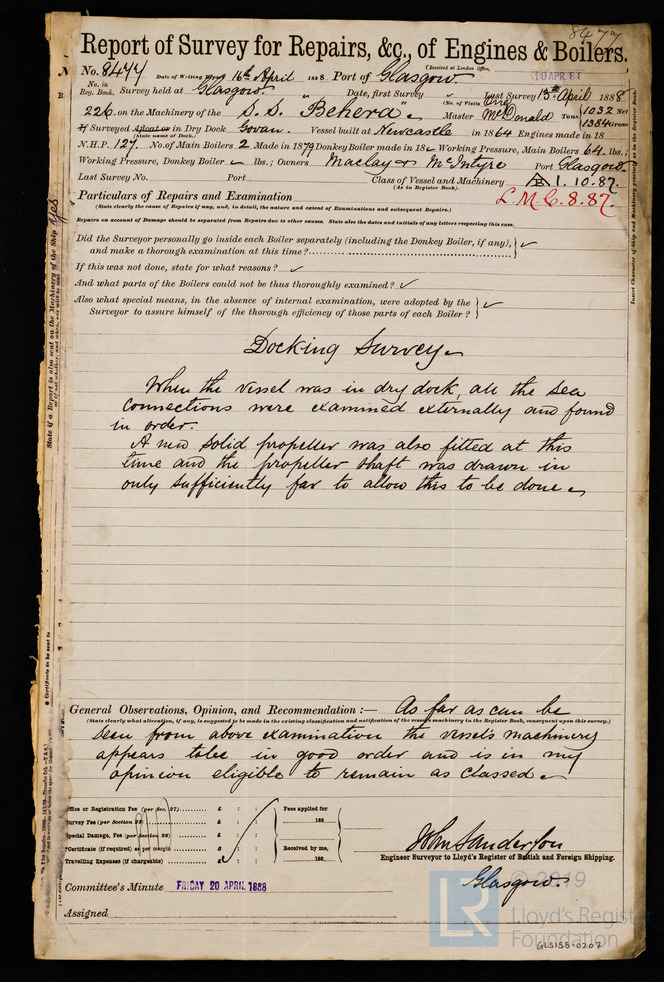 8477
Report of Survey for Repairs, &c., of Engines & Boilers.
(Received at London Office,
No. 8477 Date of Writing 16th April 1888 Port of Glasgow 19 APR. 88
No. in Reg. Book. Survey held at Glasgow Date, first Survey Last Survey 13th April 1888
(No. of Visits One)
226. on the Machinery of the S.S. "Behera" Master McDonald Tons 1032 Net 1384 Gross
If Surveyed Afloat or in Dry Dock Govan. Vessel built at Newcastle in 1864 Engines made in 18
(State name of Dock.)
N.H.P. 127. No. of Main Boilers 2 Made in 1879 Donkey Boiler made in 18 Working Pressure, Main Boilers 64 lbs.;
Working Pressure, Donkey Boiler lbs.; Owners Maclay & McIntyre Port Glasgow
Last Survey No. Port Class of Vessel and Machinery 1. 10.87.
(As in Register Book).
L.M.C. 8.87
Particulars of Repairs and Examination
(State clearly the cause of Repairs if any, and, in detail, the nature and extent of Examinations and subsequent Repairs.)
Repairs on account of Damage should be separated from Repairs due to other causes. State also the dates and initials of any letters respecting this case.
Did the Surveyor personally go inside each Boiler separately (including the Donkey Boiler, if any),
and make a thorough examination at this time?
If this was not done, state for what reasons?
And what parts of the Boilers could not be thus thoroughly examined?
Also what special means, in the absence of internal examination, were adopted by the
Surveyor to assure himself of the thorough efficiency of those parts of each Boiler?
Docking Survey
When the vessel was in dry dock, all the sea
connections were examined externally and found
in order.
A new solid propeller was also fitted at this
time and the propeller shaft was drawn in
only sufficiently far to allow this to be done
General Observations, Opinion, and Recommendation:— As far as can be
(State clearly what alteration, if any, is suggested to be made in the existing classification and notification of the vessel's machinery in the Register Book, consequent upon this survey.)
seen from above examination the vessel's machinery
appears to be in good order and is in my
opinion eligible to remain as classed
Office or Registration Fee (per Sec. 27) £ : : Fees applied for
Survey Fee (per Section 28) £ : : 188
Special Damage, Fee (per Section 28) £ : :
Certificate (if required) as per margin £ : : Received by me,
Travelling Expenses (if chargeable) £ : : 188
John Sanderson
Engineer Surveyor to Lloyd's Register of British and Foreign Shipping.
Glasgow.
Committee's Minute FRIDAY 20 APRIL 1888
Assigned
State if a Report is also sent on the Machinery of the Ship Yes
Insert Character of Ship and Machinery precisely as in the Register Book.
Certificate to be sent to
© 2019
LR
Lloyd's Register
Foundation
GLS155-0207